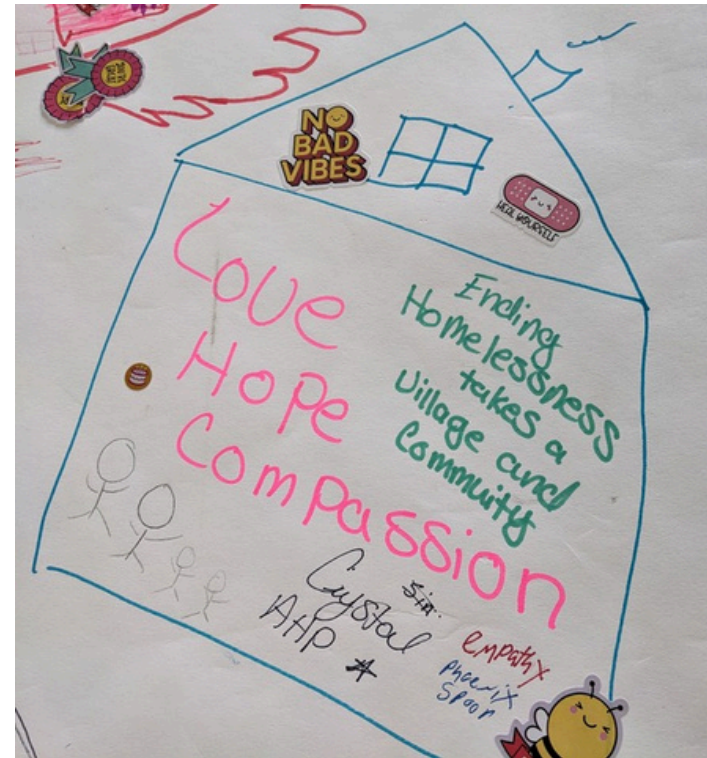 NO
BAD
VIBES
HEAL YOURSELF
Love
Hope
Compassion
Ending
Homelessness
takes a
Village and
Commuity
Crystal
AHP
empathy
phoenix
spoon